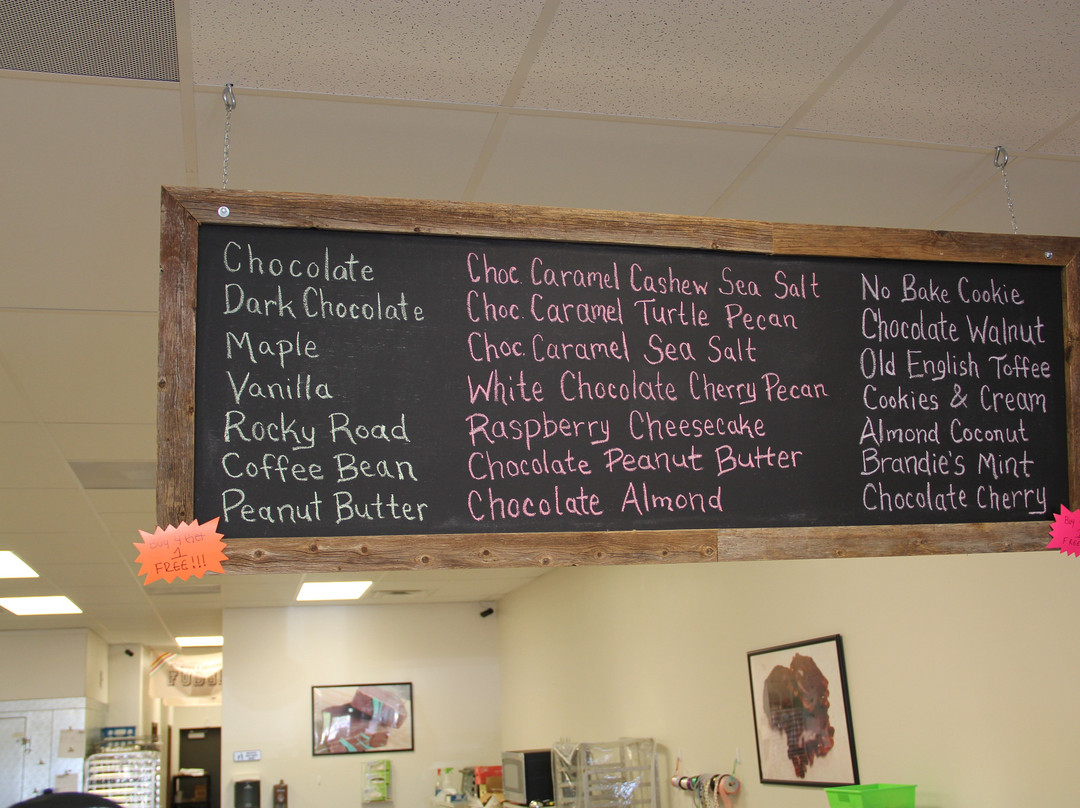 Chocolate
Dark Chocolate
Maple
Vanilla
Rocky Road
Coffee Bean
Peanut Butter
Choc. Caramel Cashew Sea Salt
Choc. Caramel Turtle Pecan
Choc. Caramel Sea Salt
White Chocolate Cherry Pecan
Raspberry Cheesecake
Chocolate Peanut Butter
Chocolate Almond
No Bake Cookie
Chocolate Walnut
Old English Toffee
Cookies & Cream
Almond Coconut
Brandie's Mint
Chocolate Cherry
BUY 4 GET
1
FREE!!!
FUDGE